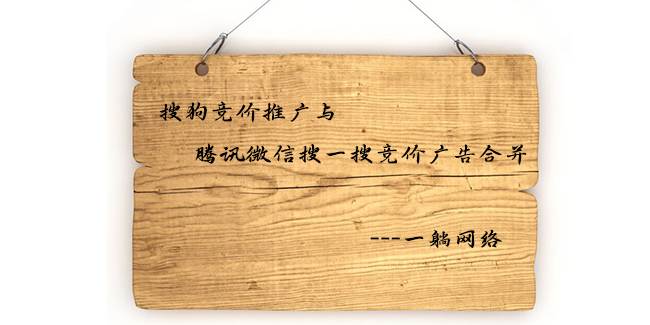 搜狗竞价推广与
腾讯微信搜一搜竞价广告合并
---一躺网络